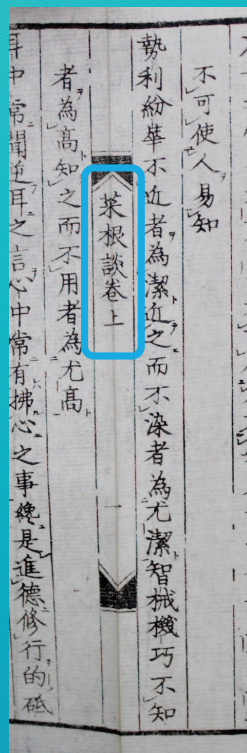 不可使人易知
勢利紛華不近者為潔近之而不染者為尤潔智械機巧不知
菜根談卷上
一
者為高知之而不用者為尤高
耳中常聞逆耳之言心中常有拂心之事纔是進德修行的砥